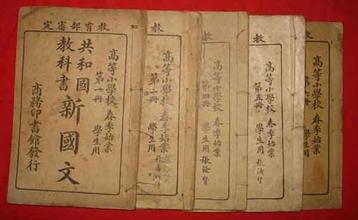 教育部審定
高等小學校 春季始業
第一冊 學生用
共和國
教科書
新國文
商務印書館發行
教
高等小學校 春季始業
第二冊
學生用
教
高等小學校 春季始業
第四冊
學生用
教
高等小學校 春季始業
第五冊
學生用
高等小學校 春季始業
學生用